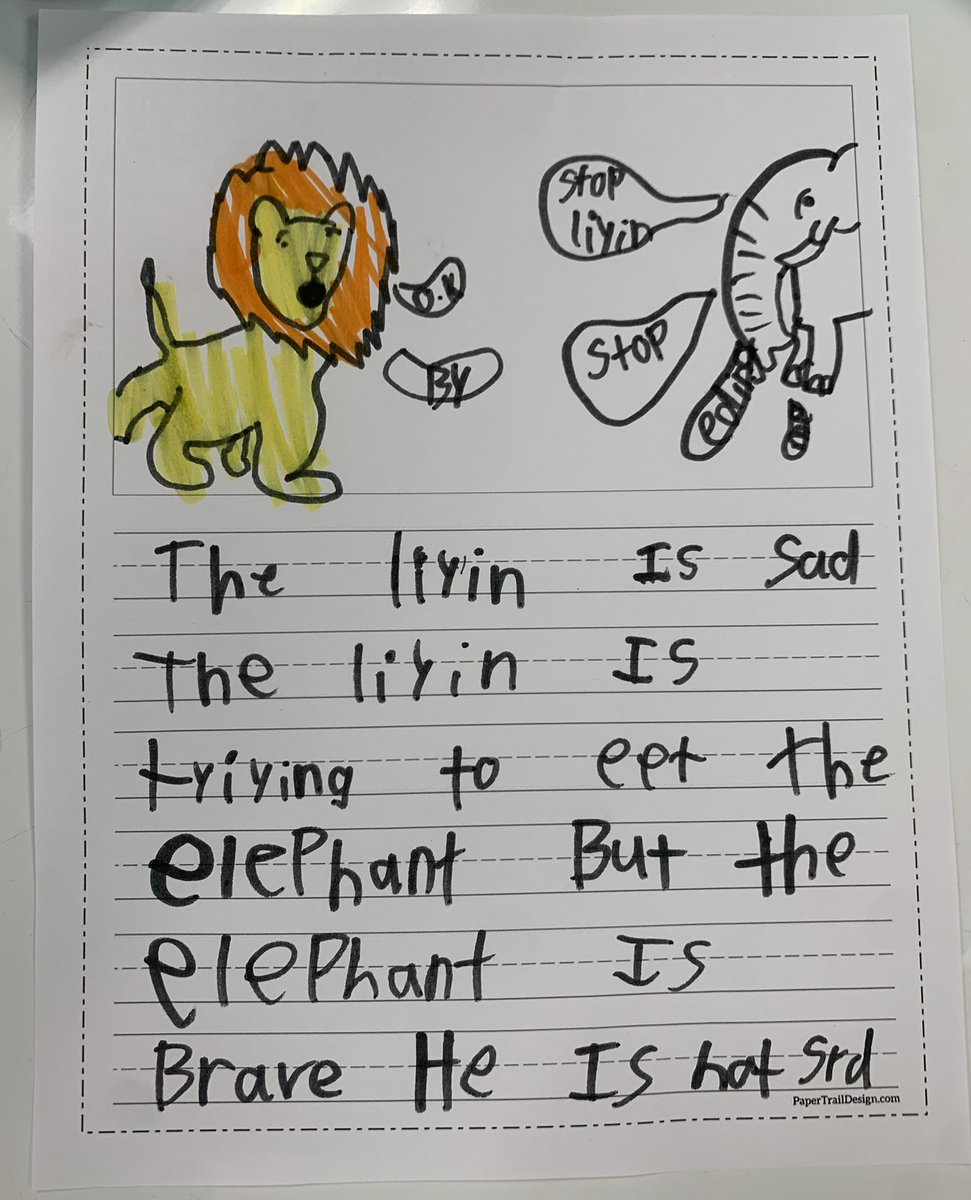 stop
liyin
O.K
BY
stop
The liyin Is sad
The liyin Is
triying to eet the
elePhant But the
elePhant Is
Brave He Is not srd
PaperTrailDesign.com